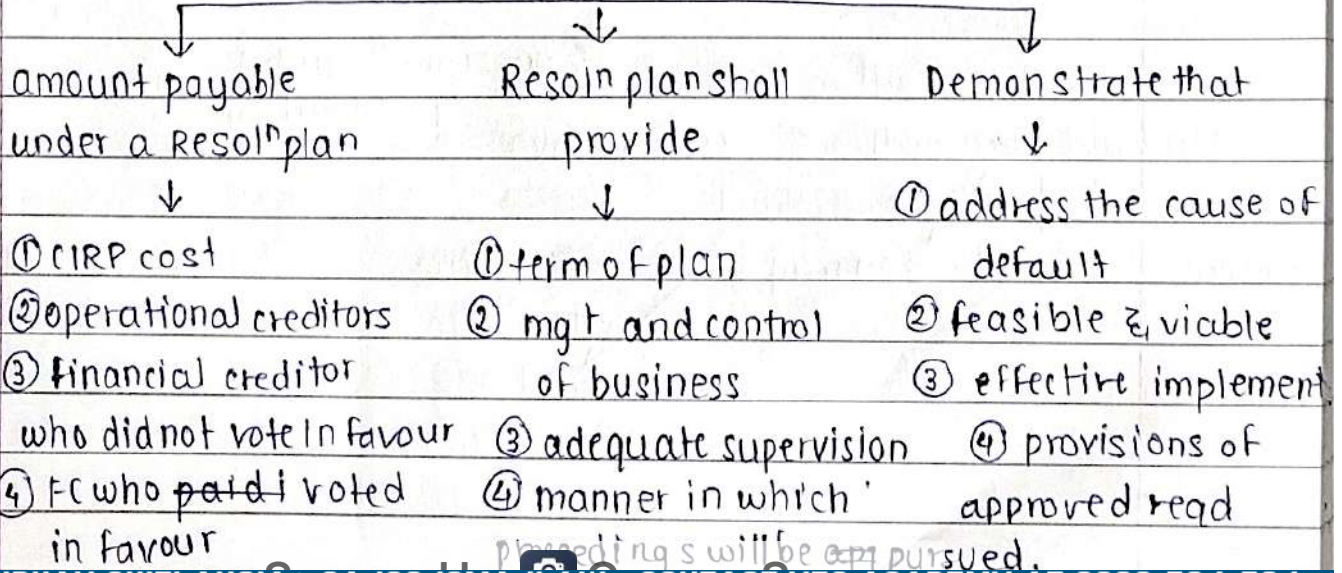 amount payable
under a Resolⁿ plan
① CIRP cost
② operational creditors
③ financial creditor
who did not vote in favour
④ FC who paid i voted
in favour
Resolⁿ plan shall
provide
① term of plan
② mgt and control
of business
③ adequate supervision
④ manner in which
proceedings will be app pursued.
Demonstrate that
① address the cause of
default
② feasible & viable
③ effective implement
④ provisions of
approved reqd